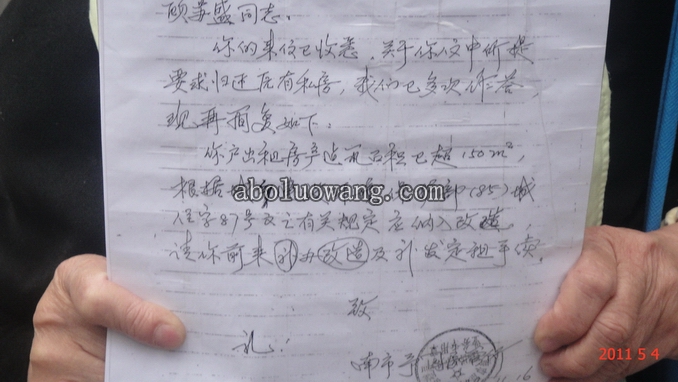 顾苏盛同志:
你的来信已收悉,关于你信中所提
要求归还原有私房,我们已多次作答,
现再简复如下。
你户出租房产造
面积已超150m²,
根据
部(85)城
住字87号文之有关规定应纳入改造。
请你前来补办改造及补发定租手续。
致
礼!
南市
aboluowang.com
2011 5 4